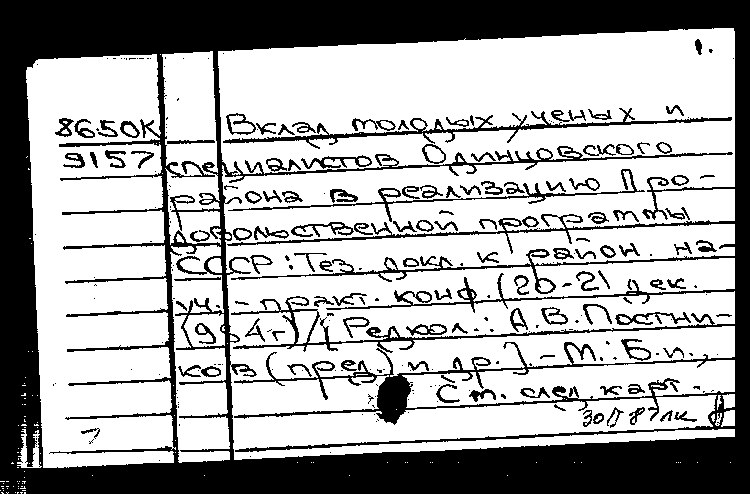 1.
8650К Вклад молодых ученых и
9157 специалистов Одинцовского
района в реализацию Про-
довольственной программы
СССР : Тез. докл. к район. на-
уч.-практ. конф. (20-21 дек.
1984г) / [Редкол.: А.В. Постни-
ков (пред.) и др.]. - М.: Б.и.,
См. след. карт.